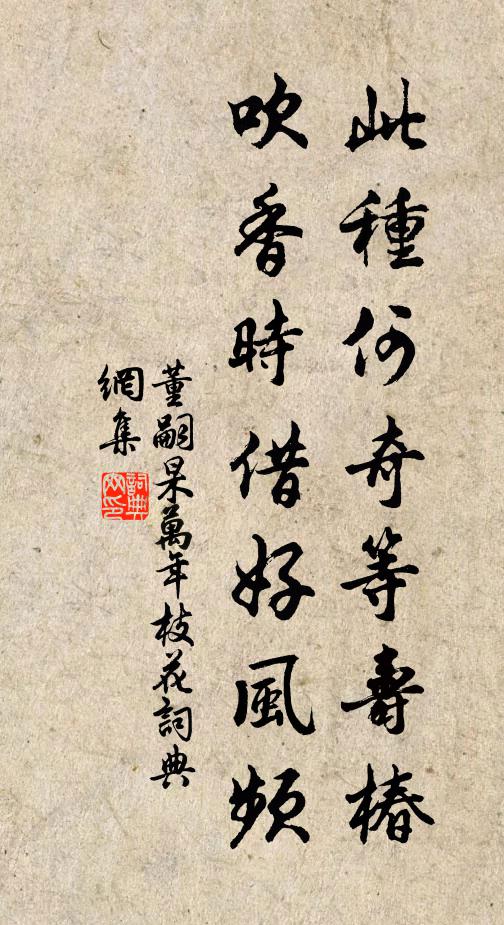 此種何奇等壽椿
吹香時借好風頻
董嗣杲萬年枝花詞典
網集
詞典
網印